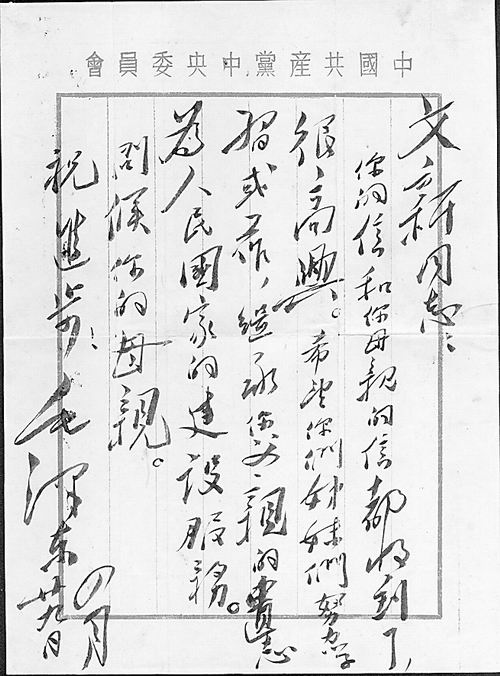 中國共産黨中央委員會
文新同志：
你的信和你母親的信都收到了，
很高興。希望你們姊妹們努力學
習或工作，繼承你父親的遺志
為人民國家的建設服務。
問候你的母親。
祝進步！
毛澤東
四月
廿九日